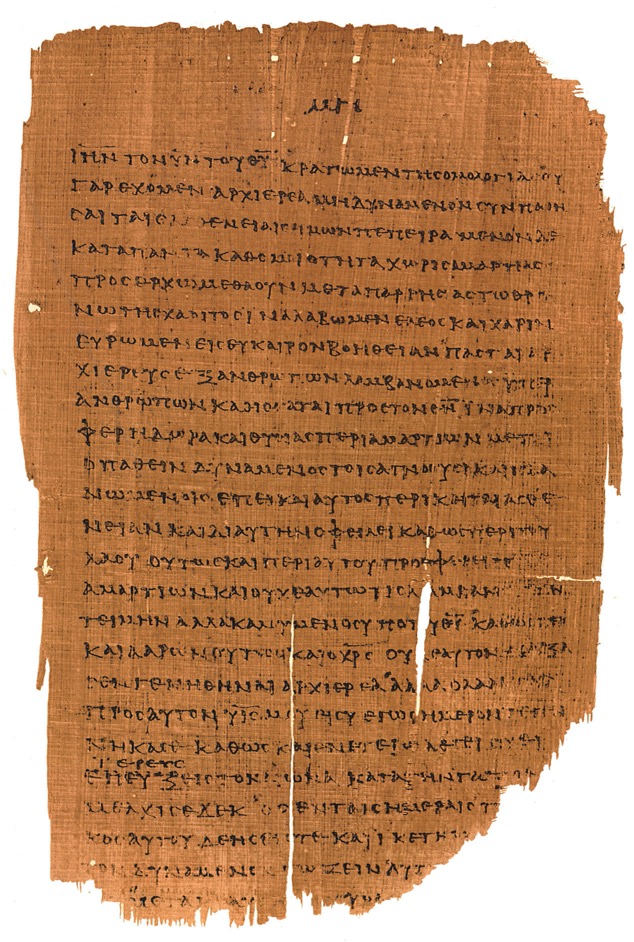 ΙΗΝ ΤΟΝ ΥΝ ΤΟΥ ΘΥ ΚΡΑΤΩΜΕΝ ΤΗϹ ΟΜΟΛΟΓΙΑϹ ΟΥ
ΓΑΡ ΕΧΟΜΕΝ ΑΡΧΙΕΡΕΑ ΜΗ ΔΥΝΑΜΕΝΟΝ
ϹΑΙ ΤΑΙϹ ΗΜΩΝ ΠΕΠΕΙΡΑϹΜΕΝΟΝ ΔΕ
ΚΑΤΑ ΠΑΝΤΑ ΚΑΘ ΟΜΟΙΟΤΗΤΑ ΧΩΡΙϹ ΑΜΑΡΤΙΑϹ
ΠΡΟϹΕΡΧΩΜΕΘΑ ΟΥΝ ΜΕΤΑ ΠΑΡΡΗϹΙΑϹ ΤΩ ΘΡΟ
ΝΩ ΤΗϹ ΧΑΡΙΤΟϹ ΙΝΑ ΛΑΒΩΜΕΝ ΕΛΕΟϹ ΚΑΙ ΧΑΡΙΝ
ΕΥΡΩΜΕΝ ΕΙϹ ΕΥΚΑΙΡΟΝ ΒΟΗΘΕΙΑΝ ΠΑϹ ΓΑΡ ΑΡ
ΧΙΕΡΕΥϹ ΕΞ ΑΝΘΡΩΠΩΝ ΛΑΜΒΑΝΟΜΕΝΟϹ ΥΠΕΡ
ΑΝΘΡΩΠΩΝ ΚΑΘΙϹΤΑΤΑΙ ΠΡΟϹ ΤΟΝ ΘΝ ΙΝΑ ΠΡΟϹ
ΦΕΡΗ ΔΩΡΑ ΚΑΙ ΘΥϹΙΑϹ ΠΕΡΙ ΑΜΑΡΤΙΩΝ ΜΕΤΡΙ
ΟΠΑΘΕΙΝ ΔΥΝΑΜΕΝΟϹ ΤΟΙϹ ΑΓΝΟΟΥϹΙ ΚΑΙ ΠΛΑ
ΝΩΜΕΝΟΙϹ ΕΠΕΙ ΚΑΙ ΑΥΤΟϹ ΠΕΡΙΚΕΙΤΑΙ ΑϹΘΕ
ΝΕΙΑΝ ΚΑΙ ΔΙ ΑΥΤΗΝ ΟΦΕΙΛΕΙ ΚΑΘΩϹ ΠΕΡΙ ΤΟΥ
ΛΑΟΥ ΟΥΤΩϹ ΚΑΙ ΠΕΡΙ ΑΥΤΟΥ ΠΡΟϹΦΕΡΕΙΝ
ΑΜΑΡΤΙΩΝ ΚΑΙ ΟΥΧ ΕΑΥΤΩ ΤΙϹ ΛΑΜΒΑΝΕΙ ΤΗΝ
ΤΕΙΜΗΝ ΑΛΛΑ ΚΑΛΟΥΜΕΝΟϹ ΥΠΟ ΤΟΥ ΘΥ
ΚΑΙ ΑΑΡΩΝ ΟΥΤΩϹ ΚΑΙ Ο ΧΡϹ ΟΥΧ ΕΑΥΤΟΝ
ϹΕΝ ΓΕΝΗΘΗΝΑΙ ΑΡΧΙΕΡΕΑ ΑΛΛΑ Ο ΛΑΛΗϹΑϹ
ΠΡΟϹ ΑΥΤΟΝ ΥΙϹ ΜΟΥ ΕΙ ϹΥ ΕΓΩ ϹΗΜΕΡΟΝ
ΝΗΚΑ ϹΕ ΚΑΘΩϹ ΚΑΙ ΕΝ ΕΤΕΡΩ ΛΕΓΕΙ ϹΥ ΕΙ
ΙΕΡΕΥϹ
ΕΠΕΥΞ ΕΙϹ ΤΟΝ ΑΙΩΝΑ ΚΑΤΑ ΤΗΝ
ΜΕΛΧΙϹΕΔΕΚ ΟϹ ΕΝ ΤΑΙϹ ΗΜΕΡΑΙϹ Τ
ΚΟϹ ΑΥΤΟΥ ΔΕΗϹΕΙϹ ΤΕ ΚΑΙ ΙΚΕΤΗ
ΤΟΝ ΔΥΝΑΜΕΝΟΝ ϹΩΖΕΙΝ ΑΥΤ